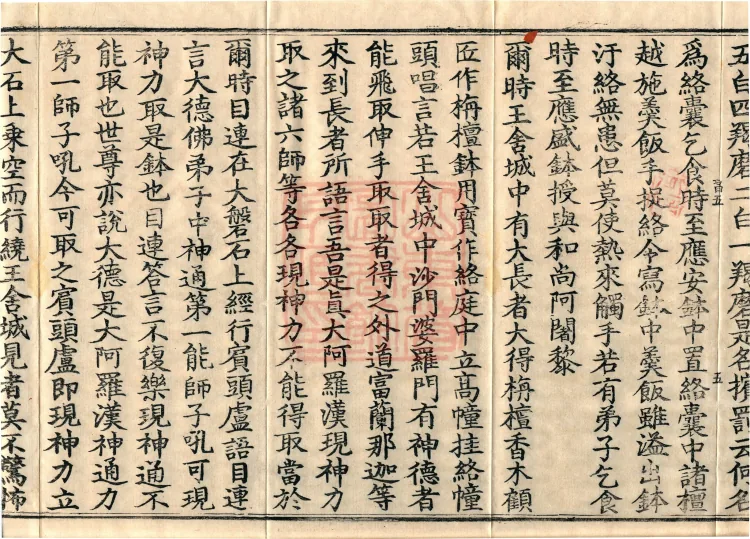 五百四羯磨二百一羯磨是名擯罰云何名
為絡囊乞食時至應安鉢中置絡囊中諸檀
越施羮飯手擬絡今寫鉢中羮飯雖溢出鉢
汙絡無患但莫使熱來觸手若有弟子乞食
時至應盛鉢授與和尚阿闍黎
爾時王舍城中有大長者大得栴檀香木顧
匠作栴檀鉢用寶作絡庭中立高幢挂絡幢
頭唱言若王舍城中沙門婆羅門有神德者
能飛取伸手取取者得之外道富蘭那迦等
來到長者所語言吾是真大阿羅漢現神力
取之諸六師等各各現神力不能得取當於
爾時目連在大盤石上經行賓頭盧語目連
言大德佛弟子中神通第一能師子吼可現
神力取是鉢也目連答言不復樂現神通不
能取也世尊亦說大德是大阿羅漢神通力
第一師子吼今可取之賓頭盧即現神力立
大石上乘空而行繞王舍城見者莫不驚怖